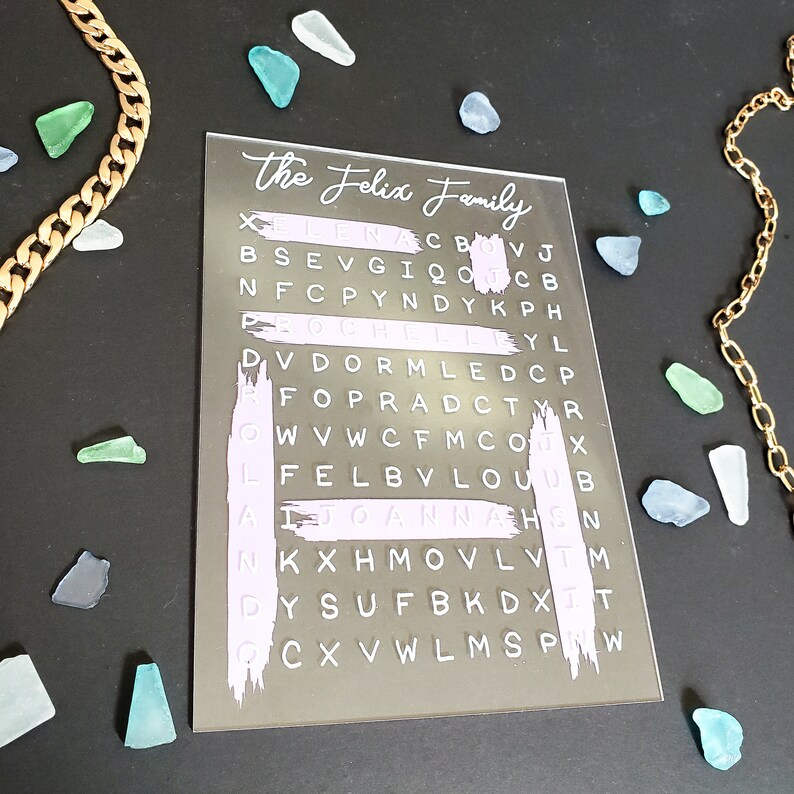 the Felix Family
X E L E N A C B O V J
B S E V G I Q O J C B
N F C P Y N D Y K P H
P R O C H E L L E Y L
D V D O R M L E D C P
R F O P R A D C T Y R
O W V W C F M C O J X
L F E L B V L O U U B
A I J O A N N A H S N
N K X H M O V L V T M
D Y S U F B K D X I T
O C X V W L M S P N W